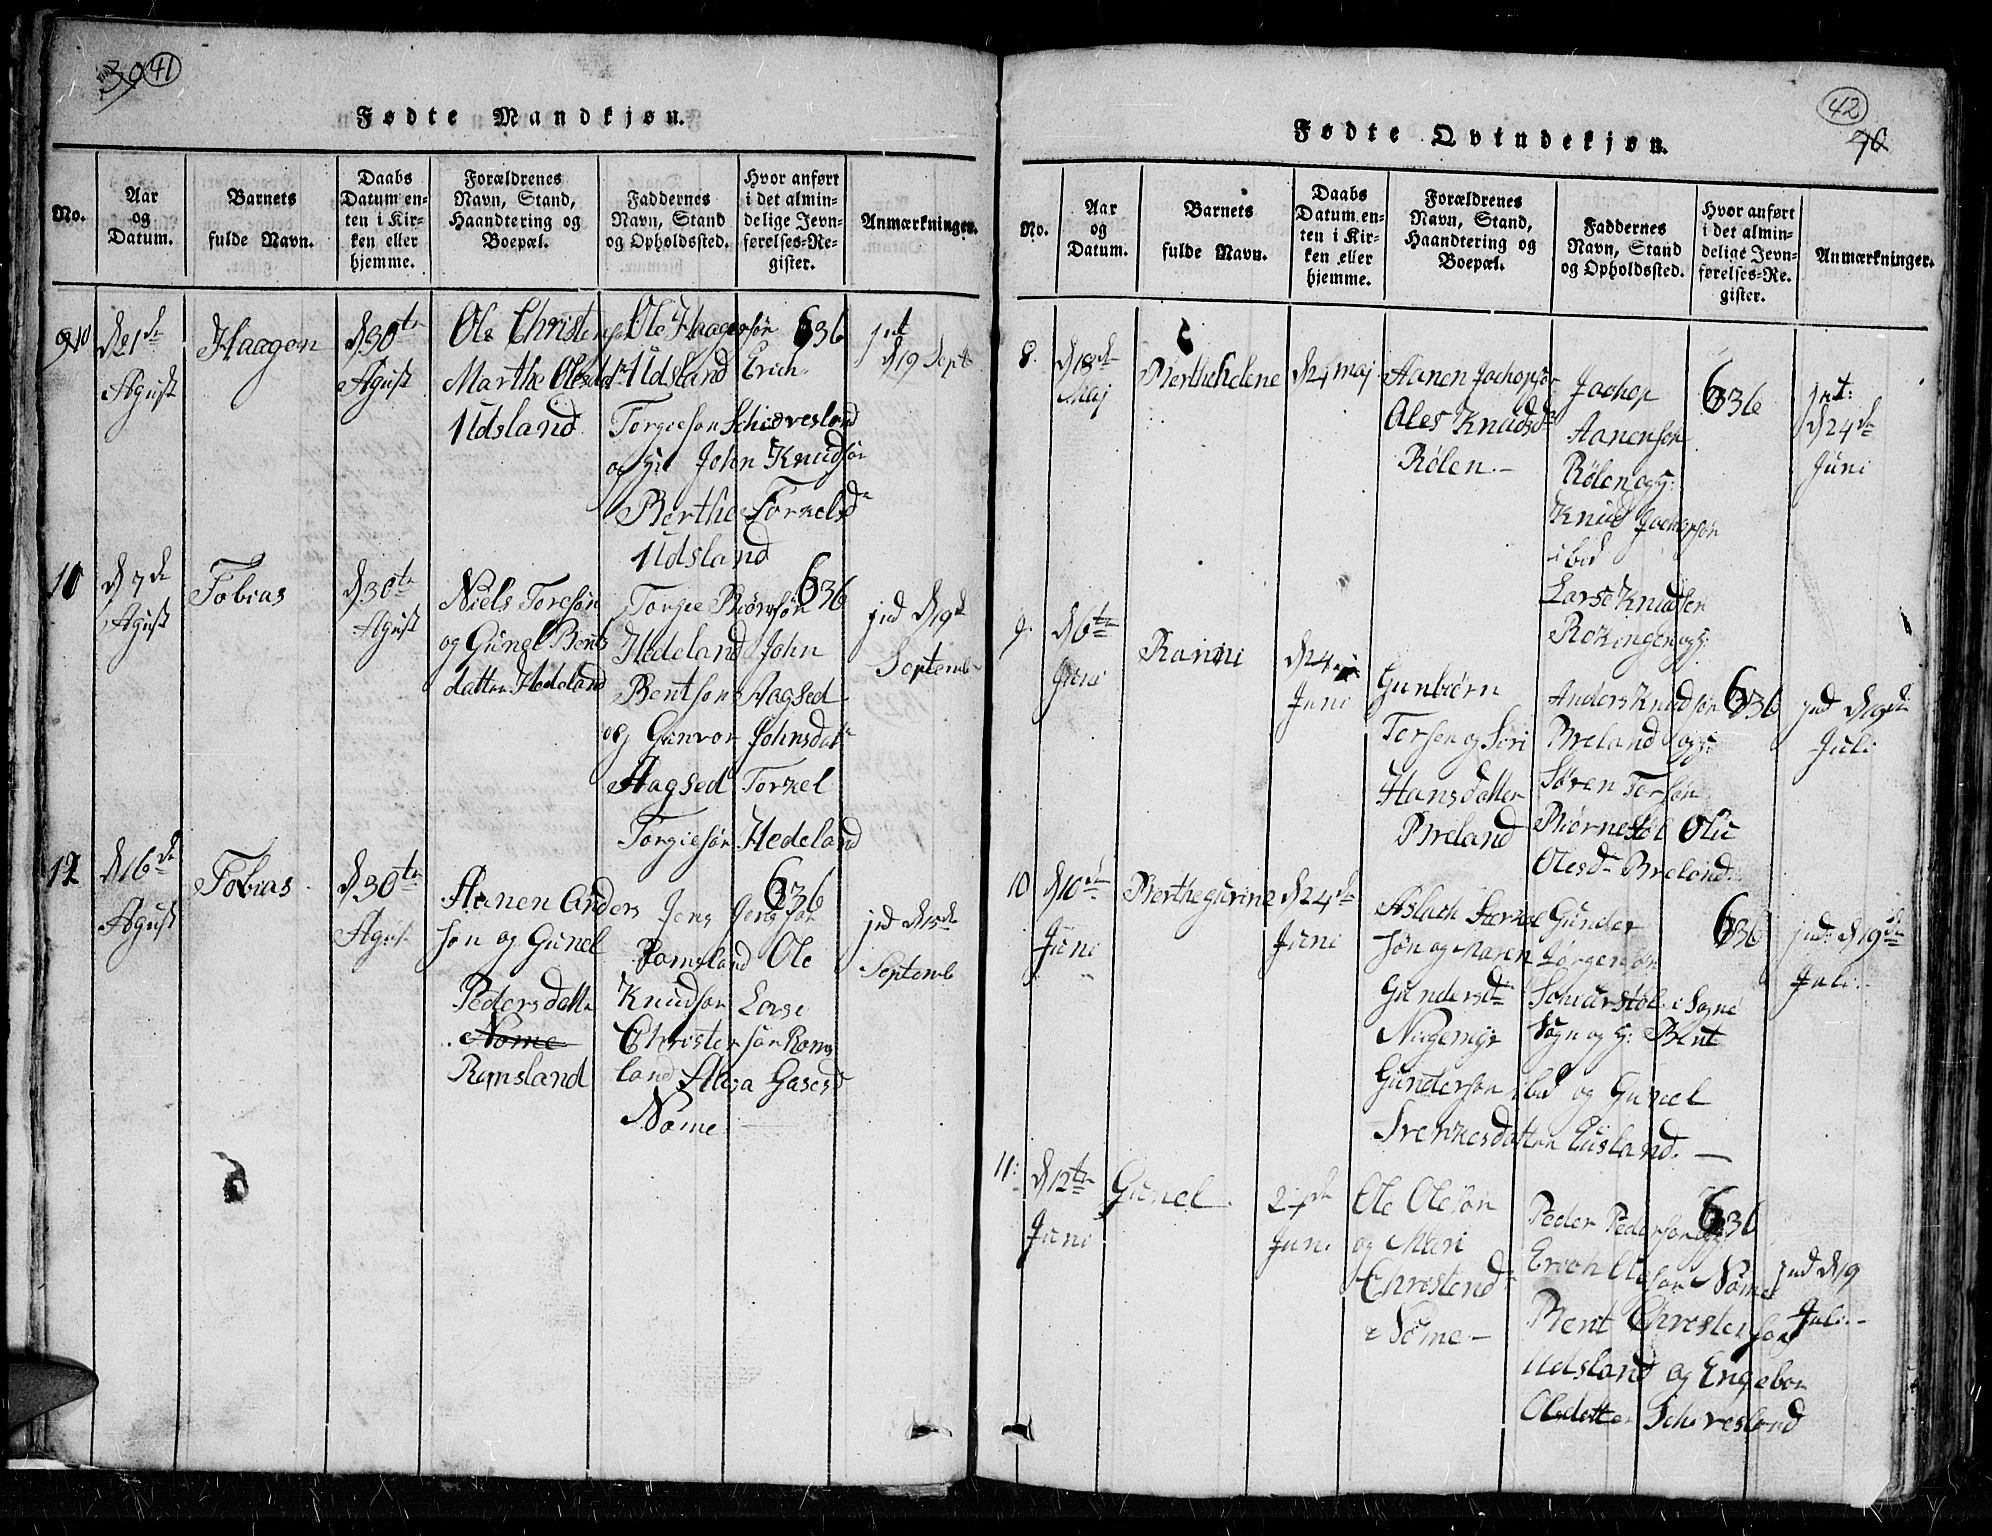 39 41
Fødte Mandkjøn.
No.
Aar
og
Datum.
Barnets
fulde Navn.
Daabs
Datum en-
ten i Kir-
ken eller
hjemme.
Forældrenes
Navn, Stand,
Haandtering og
Boepæl.
Faddernes
Navn, Stand
og Opholdssted.
Hvor anført
i det almin-
delige Jevn-
førelses-Re-
gister.
Anmærkninger.
10
d 21de
Agust
Haagen
d 30te
Agust
Ole Christens
Marthe Olesdatr
Udsland
Ole Haagensøn
Udsland Erich
Torgiesøn Schieresland
og John Knudsøn
Berthe Torkelsdr
Udsland
636
jnt
d 19 Sept
11
d 7de
Agust
Tobias
d 30te
Agust
Niels Toresøn
og Gunel Bents
datter Hedeland
Torgie Biørnsøn
Hedeland John
Bentsøn Aagsed
og Gunvor Johnsdatr
Aagsed Torkel
Torgiesøn Hedeland
636
jnd d 19de
Septemb
12
d 16de
Agust
Tobias
d 30te
Agust
Aanen Anders
søn og Gunel
Pedersdatter
Nome
Romsland
Jens Jensøn
Romsland Ole
Knudsøn Larse
Christensøn Roms
land Gasesd
Nome
636
jnd d 15de
Septemb
42
40
Fødte Qvindekjøn.
No.
Aar
og
Datum.
Barnets
fulde Navn.
Daabs
Datum en-
ten i Kir-
ken eller
hjemme.
Forældrenes
Navn, Stand,
Haandtering og
Boepæl.
Faddernes
Navn, Stand
og Opholdssted.
Hvor anført
i det almin-
delige Jevn-
førelses-Re-
gister.
Anmærkninger.
8.
d 18de
Maj
Berthehelene
d 24 maj
Aanen Jachopsøn
Ales Knudsdr
Rølen.-
Jachop
Aanensøn
Rølen og H:
Knud Jachopsøn
ibid
Larse Knudsen
Røkingen og H:
636
jnt:
d 24de
Juni
9.
d 6te
Juni
Ranni
d 24
Juni
Gunbiørn
Torsen og Siri
Hansdatter
Breland
Anders Knudsøn
Breland og H:
Søren Torsøn
Biørnestøl Olu
Olesdr Breland.
636
jnd d 19de
Juli
10
d 10de
Juni
Berthegurine
d 24de
Juni
Aslach
søn og Maren
Gundersdr
Gunder
Jørgensøn
i Sogne
Sogn og H: Bent
Gundersøn ibid og Gunel
636
jnd: d 19de
Juli.
11:
d 12te
Juni
Gunel
24de
Juni
Ole Olesøn
og Mari
Christensdr
Nome-
Peder Pedersøn og H:
Erich Olesøn Nome
Bent Christensøn
Udsland og Engebor
Olsdatter Schiresland
636
jnd d 19
Juli-